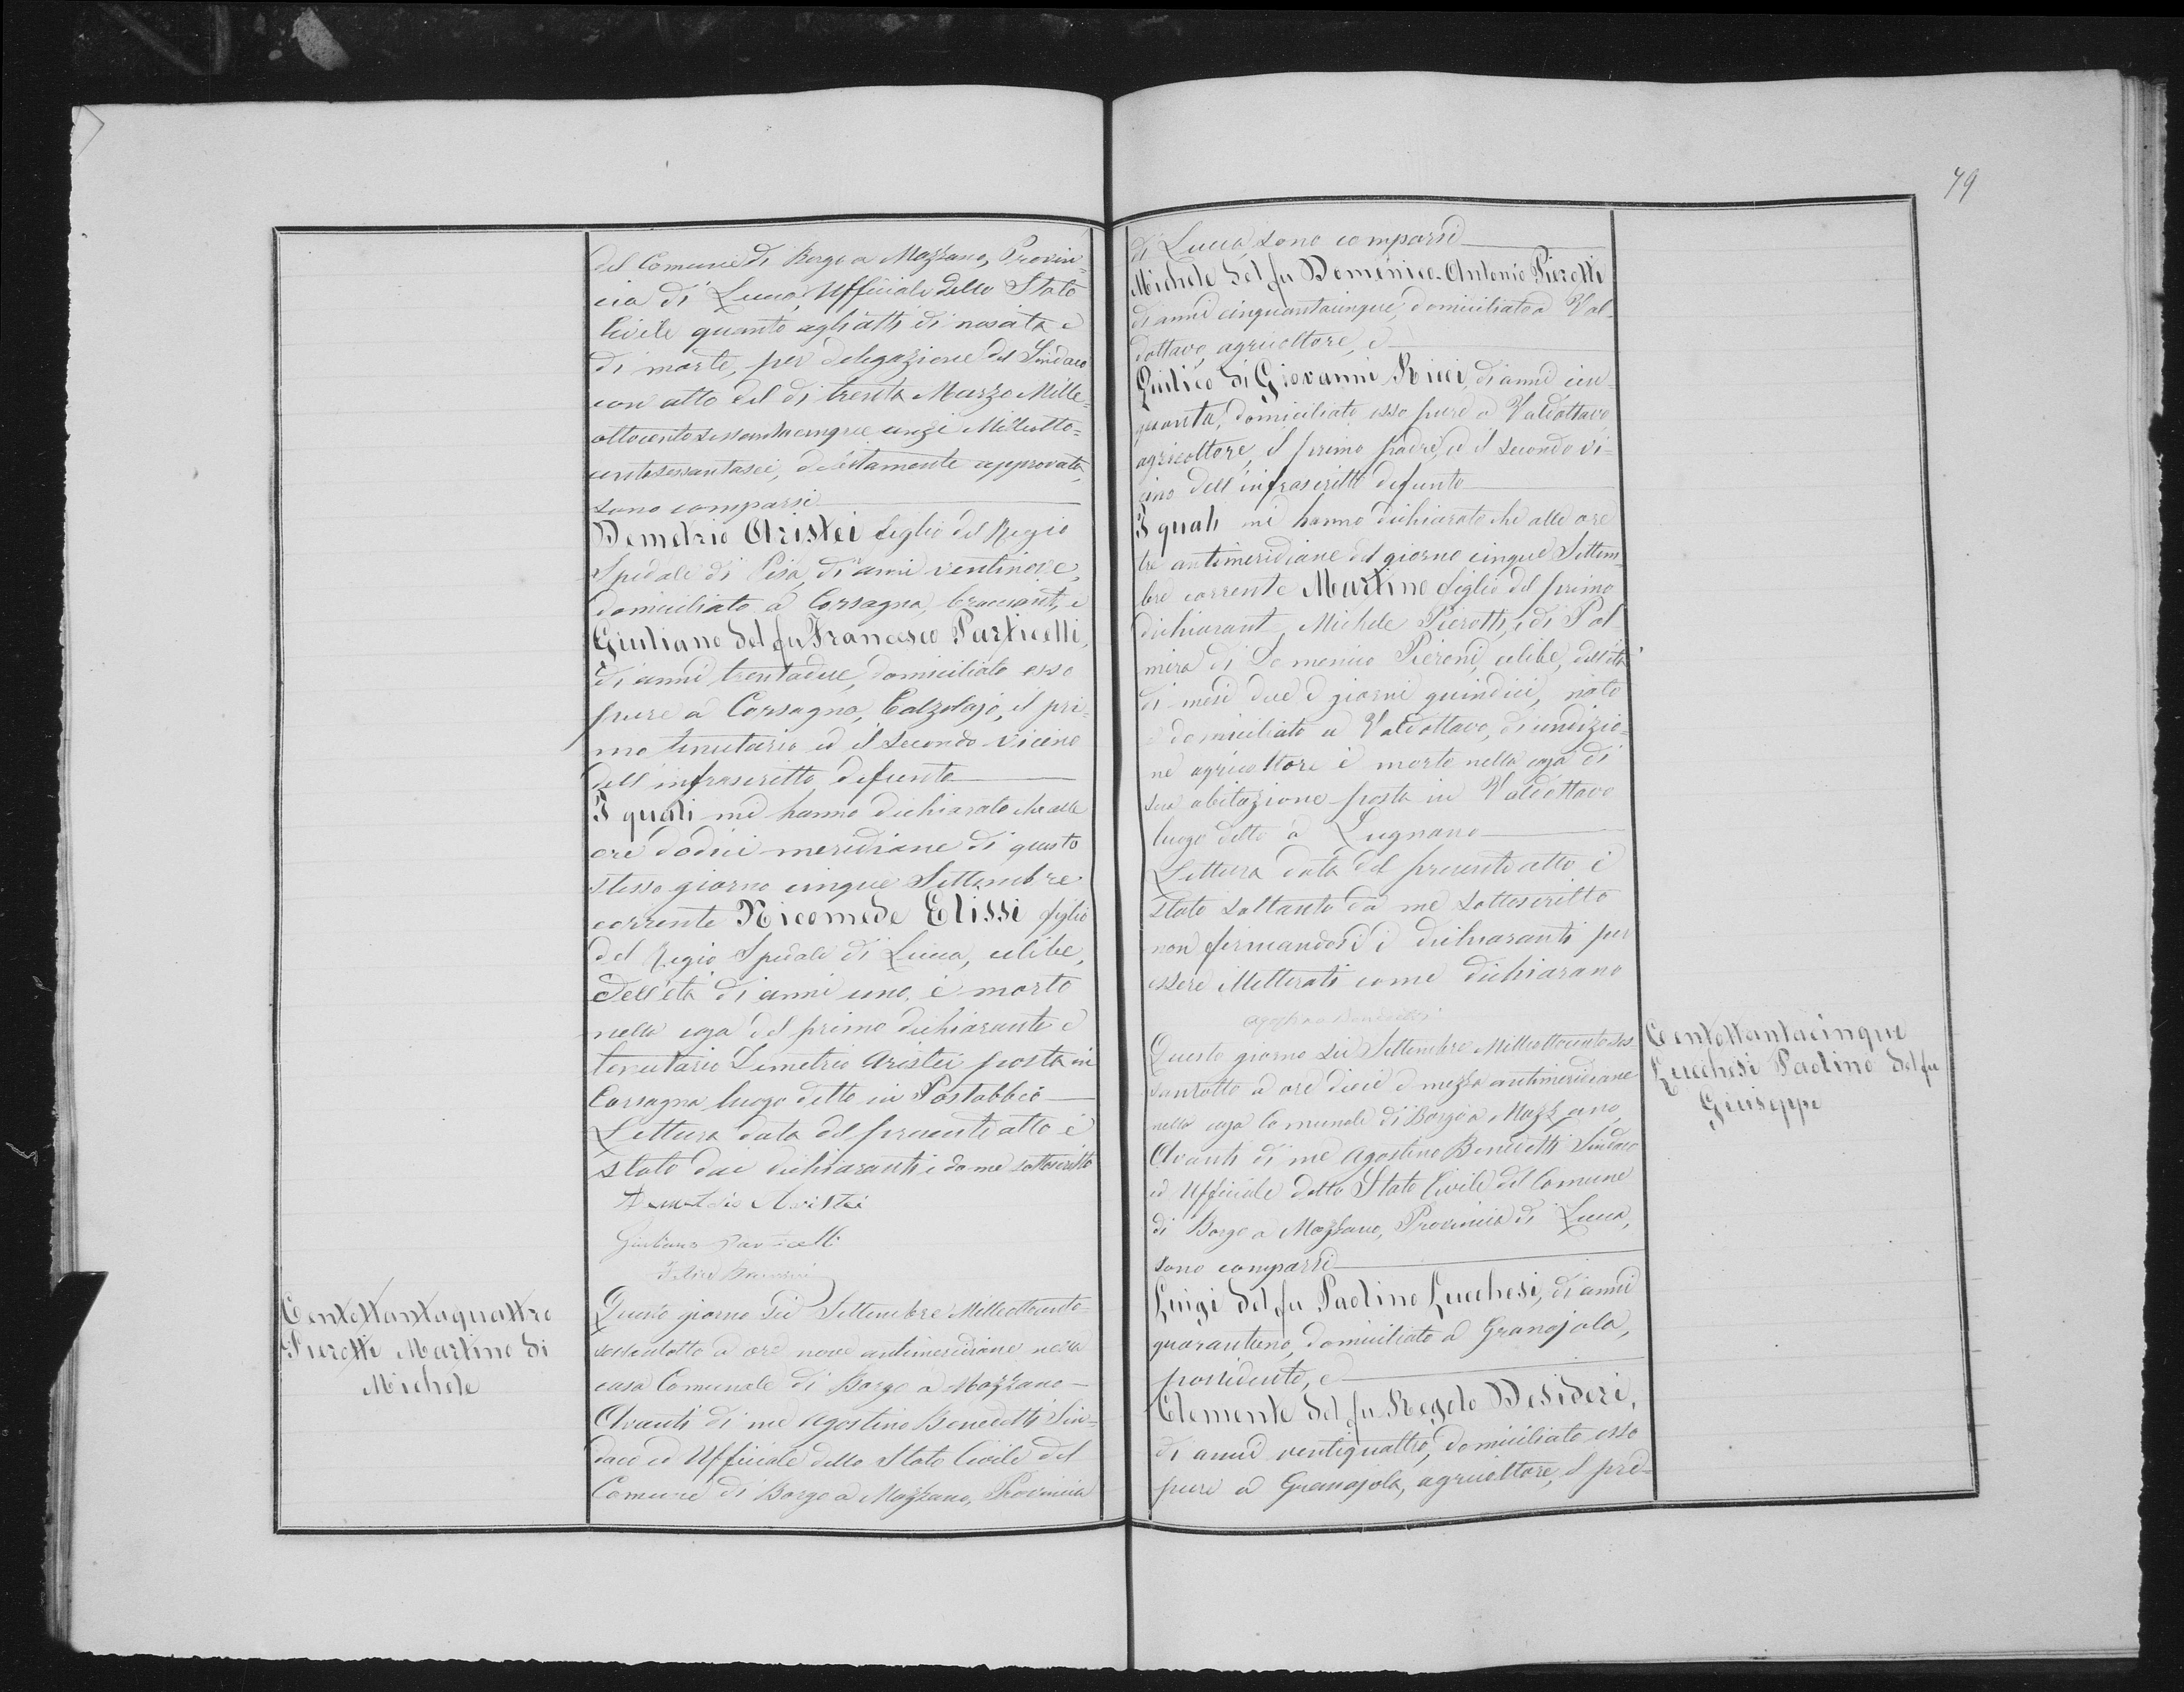 del Comune di Borgo a Mozzano, Provin=
cia di Lucca, Ufficiale dello Stato
Civile quanto agli atti di nascita e
di morte, per delegazione del Sindaco
con atto del di trenta Marzo Mille=
ottocentosessantacinque anzi Milleotto=
centosessantasei, debitamente approvato,
sono comparsi
Demetrio Aristei figlio del Regio
Spedale di Pisa, di anni ventinove,
domiciliato a Corsagna, bracciante, e
Giuliano del fu Francesco Particelli,
di anni trentadue, domiciliato esso
pure a Corsagna, Calzolajo, il pri=
mo tenutario ed il secondo vicino
dell'infrascritto defunto
I quali mi hanno dichiarato che alle
ore dodici meridiane di questo
stesso giorno cinque Settembre
corrente Nicomede Elissi figlio
del Regio Spedale di Lucca, celibe,
dell'età di anni uno, è morto
nella casa del primo dichiarante e
tenutario Demetrio Aristei posta in
Corsagna luogo detto in Postabbio
Lettura data del presente atto è
stato dai dichiaranti e da me sottoscritto
Demetrio Aristei
Giuliano Particelli
Centottantaquattro
Pierotti Martino di
Michele
Questo giorno sei Settembre Milleottocento-
sessantotto a ore nove antimeridiane nella
casa Comunale di Borgo a Mozzano
Avanti di me Agostino Benedetti Sin=
daco ed Ufficiale dello Stato Civile del
Comune di Borgo a Mozzano, Provincia
79
di Lucca sono comparsi
Michele del fu Domenico-Antonio Pierotti
di anni cinquantacinque, domiciliato a Val-
dottavo, agricoltore, e
Quilico di Giovanni Ricci, di anni cin-
quanta, domiciliato esso pure a Valdottavo,
agricoltore, il primo padre, ed il secondo vi=
cino dell'infrascritto defunto
I quali mi hanno dichiarato che alle ore
tre antimeridiane del giorno cinque Settem=
bre corrente Martino figlio del primo
dichiarante Michele Pierotti, e di Pal
mira di Domenico Pieroni, celibe, dell'età
di mesi due e giorni quindici, nato
e domiciliato a Valdottavo, di condizio=
ne agricoltore è morto nella casa di
sua abitazione posta in Valdottavo
luogo detto a Lugnano
Lettura data del presente atto è
stato soltanto da me sottoscritto
non firmandosi i dichiaranti per
essere illetterati come dichiarano
Agostino Benedetti
Centottantacinque
Lucchesi Paolino del fu
Giuseppe
Questo giorno sei Settembre Milleottocentoses-
santotto a ore dieci e mezza antimeridiane
nella casa Comunale di Borgo a Mozzano,
Avanti di me Agostino Benedetti Sindaco
ed Ufficiale dello Stato Civile del Comune
di Borgo a Mozzano, Provincia di Lucca,
sono comparsi
Luigi del fu Paolino Lucchesi, di anni
quarantuno, domiciliato a Granajola,
possidente, e
Clemente del fu Regolo Desideri,
di anni ventiquattro, domiciliato esso
pure a Granajola, agricoltore, il pri=